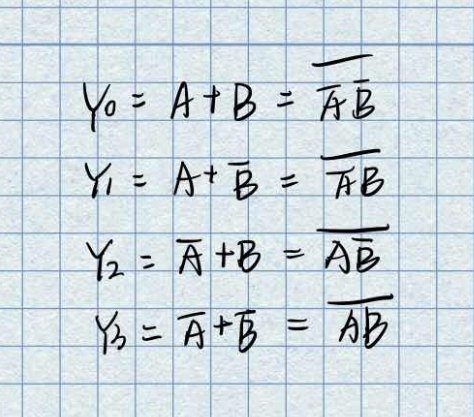 Y₀ = A + B = \overline{\overline{A}\,\overline{B}}
Y₁ = A + \overline{B} = \overline{\overline{A}B}
Y₂ = \overline{A} + B = \overline{A\overline{B}}
Y₃ = \overline{A} + \overline{B} = \overline{AB}